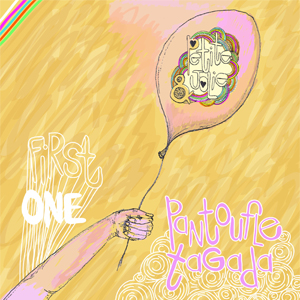 Petite
& Jolie
FiRSt
ONE
Pantoufle
tagada